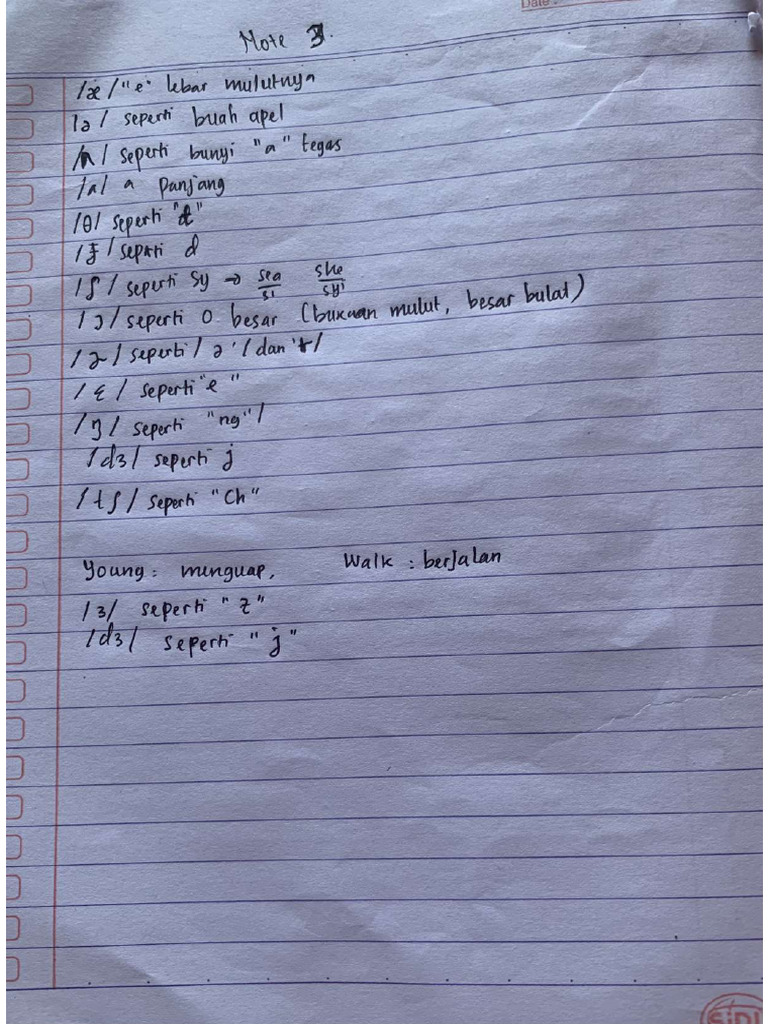 Date:
Note 3.
/æ/ "e" lebar mulutnya
/ə/ seperti buah apel
/ʌ/ seperti bunyi "a" tegas
/a/ a panjang
/θ/ seperti "t"
/ seperti d
/ʃ/ seperti sy → sea she
si syi
/ɔ/ seperti O besar (bukaan mulut, besar bulat)
/ɚ/ seperti /ə'/ dan 'r/
/ɛ/ seperti "e"
/ŋ/ seperti "ng"/
/dʒ/ seperti j
/tʃ/ seperti "Ch"
Young: minguap, Walk : berjalan
/ʒ/ seperti "z"
/dʒ/ seperti "j"
SiDU